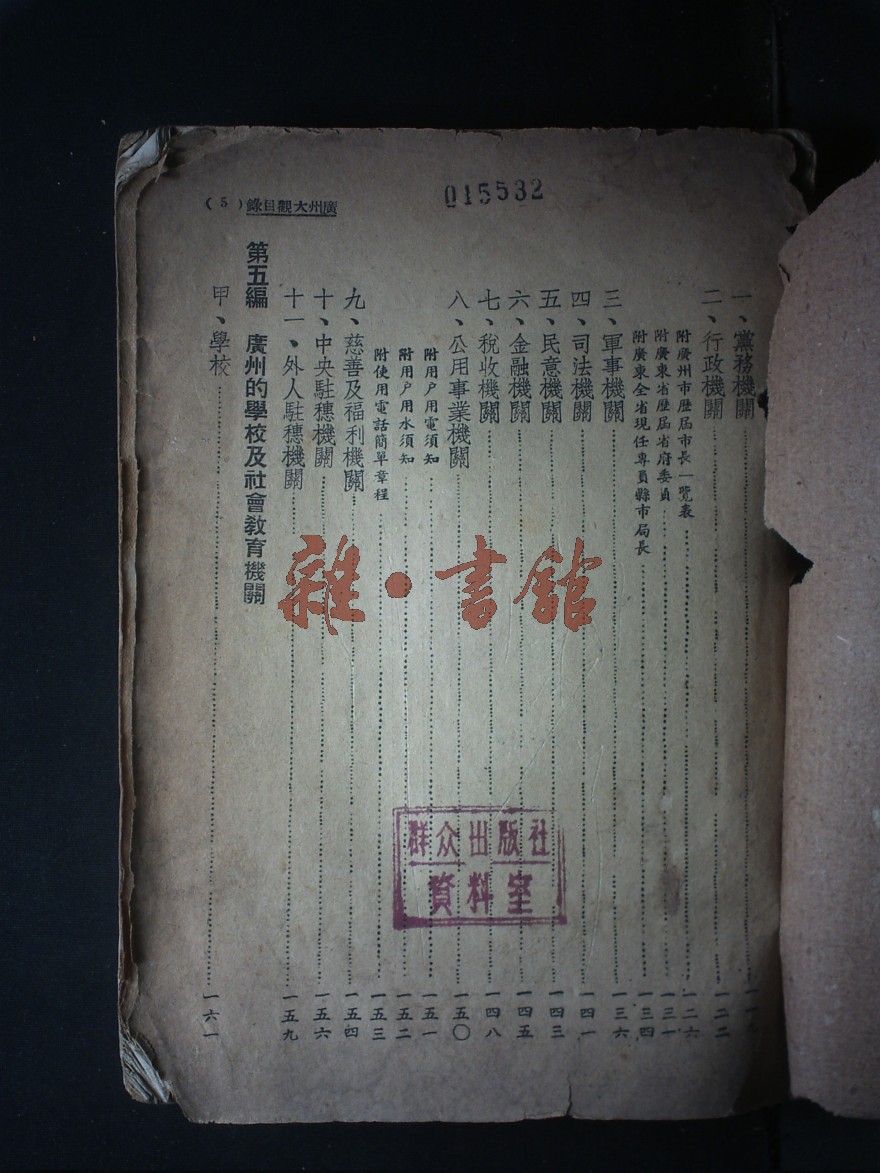 015532
廣州大觀目錄（5）
一、黨務機關
二、行政機關 一二二
附廣州市歷屆市長一覽表 一二六
附廣東省歷屆省府委員 一三一
附廣東全省現任專員縣市局長 一三四
三、軍事機關 一三六
四、司法機關 一四一
五、民意機關 一四三
六、金融機關 一四五
七、稅收機關 一四八
八、公用事業機關 一五〇
附用户用電須知 一五一
附用户用水須知 一五二
附使用電話簡單章程 一五三
九、慈善及福利機關 一五四
十、中央駐穗機關 一五六
十一、外人駐穗機關 一五九
第五編 廣州的學校及社會教育機關
甲、學校 一六一
雜·書館
群众出版社
資料室